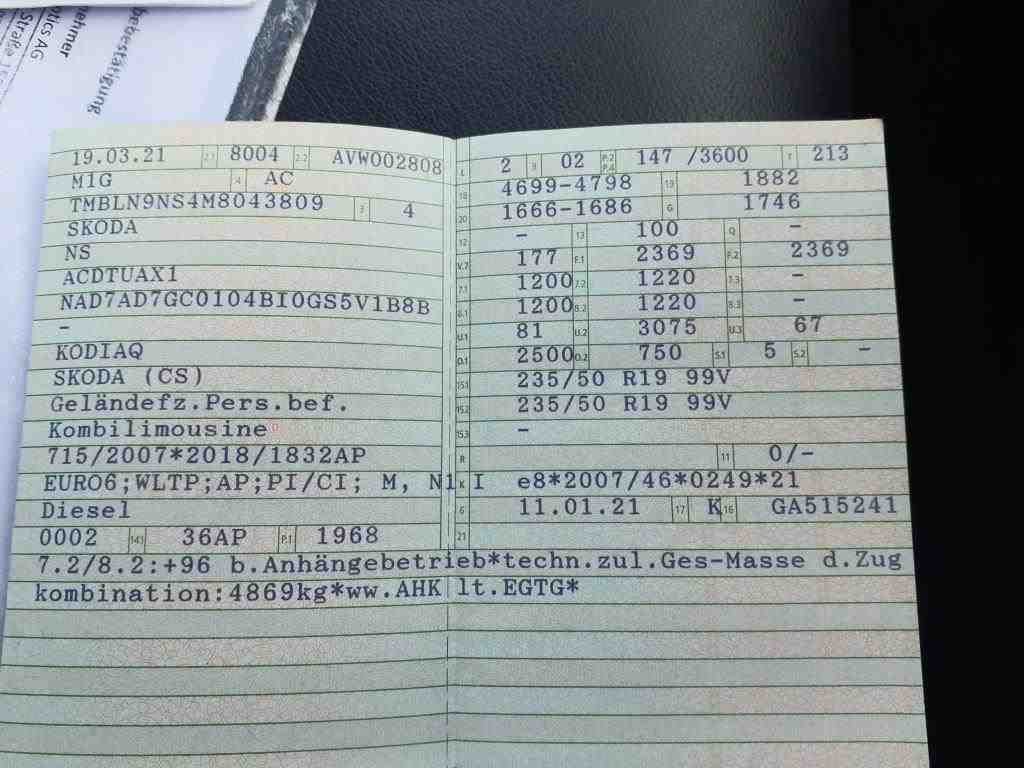 nehmer
otics AG
Straße
bebestätigung
19.03.21 2.1 8004 2.2 AVW002808
M1G 4 AC
TMBLN9NS4M8043809 3 4
SKODA
NS
ACDTUAX1
NAD7AD7GC0104BI0GS5V1B8B
-
KODIAQ
SKODA (CS)
Geländefz.Pers.bef.
Kombilimousine
715/2007*2018/1832AP
EURO6;WLTP;AP;PI/CI; M, N1 I
Diesel
0002 14.1 36AP P.1 1968
L 2 9 02 P.2 P.4 147 /3600 T 213
18 4699-4798 19 1882
20 1666-1686 G 1746
12 - 13 100 Q -
V.7 177 F.1 2369 F.2 2369
7.1 1200 7.2 1220 7.3 -
8.1 1200 8.2 1220 8.3 -
U.1 81 U.2 3075 U.3 67
O.1 2500 O.2 750 S.1 5 S.2 -
15.1 235/50 R19 99V
15.2 235/50 R19 99V
15.3 -
R 11 0/-
K e8*2007/46*0249*21
6 11.01.21 17 K 16 GA515241
21
7.2/8.2:+96 b.Anhängebetrieb*techn.zul.Ges-Masse d.Zug
kombination:4869kg*ww.AHK lt.EGTG*